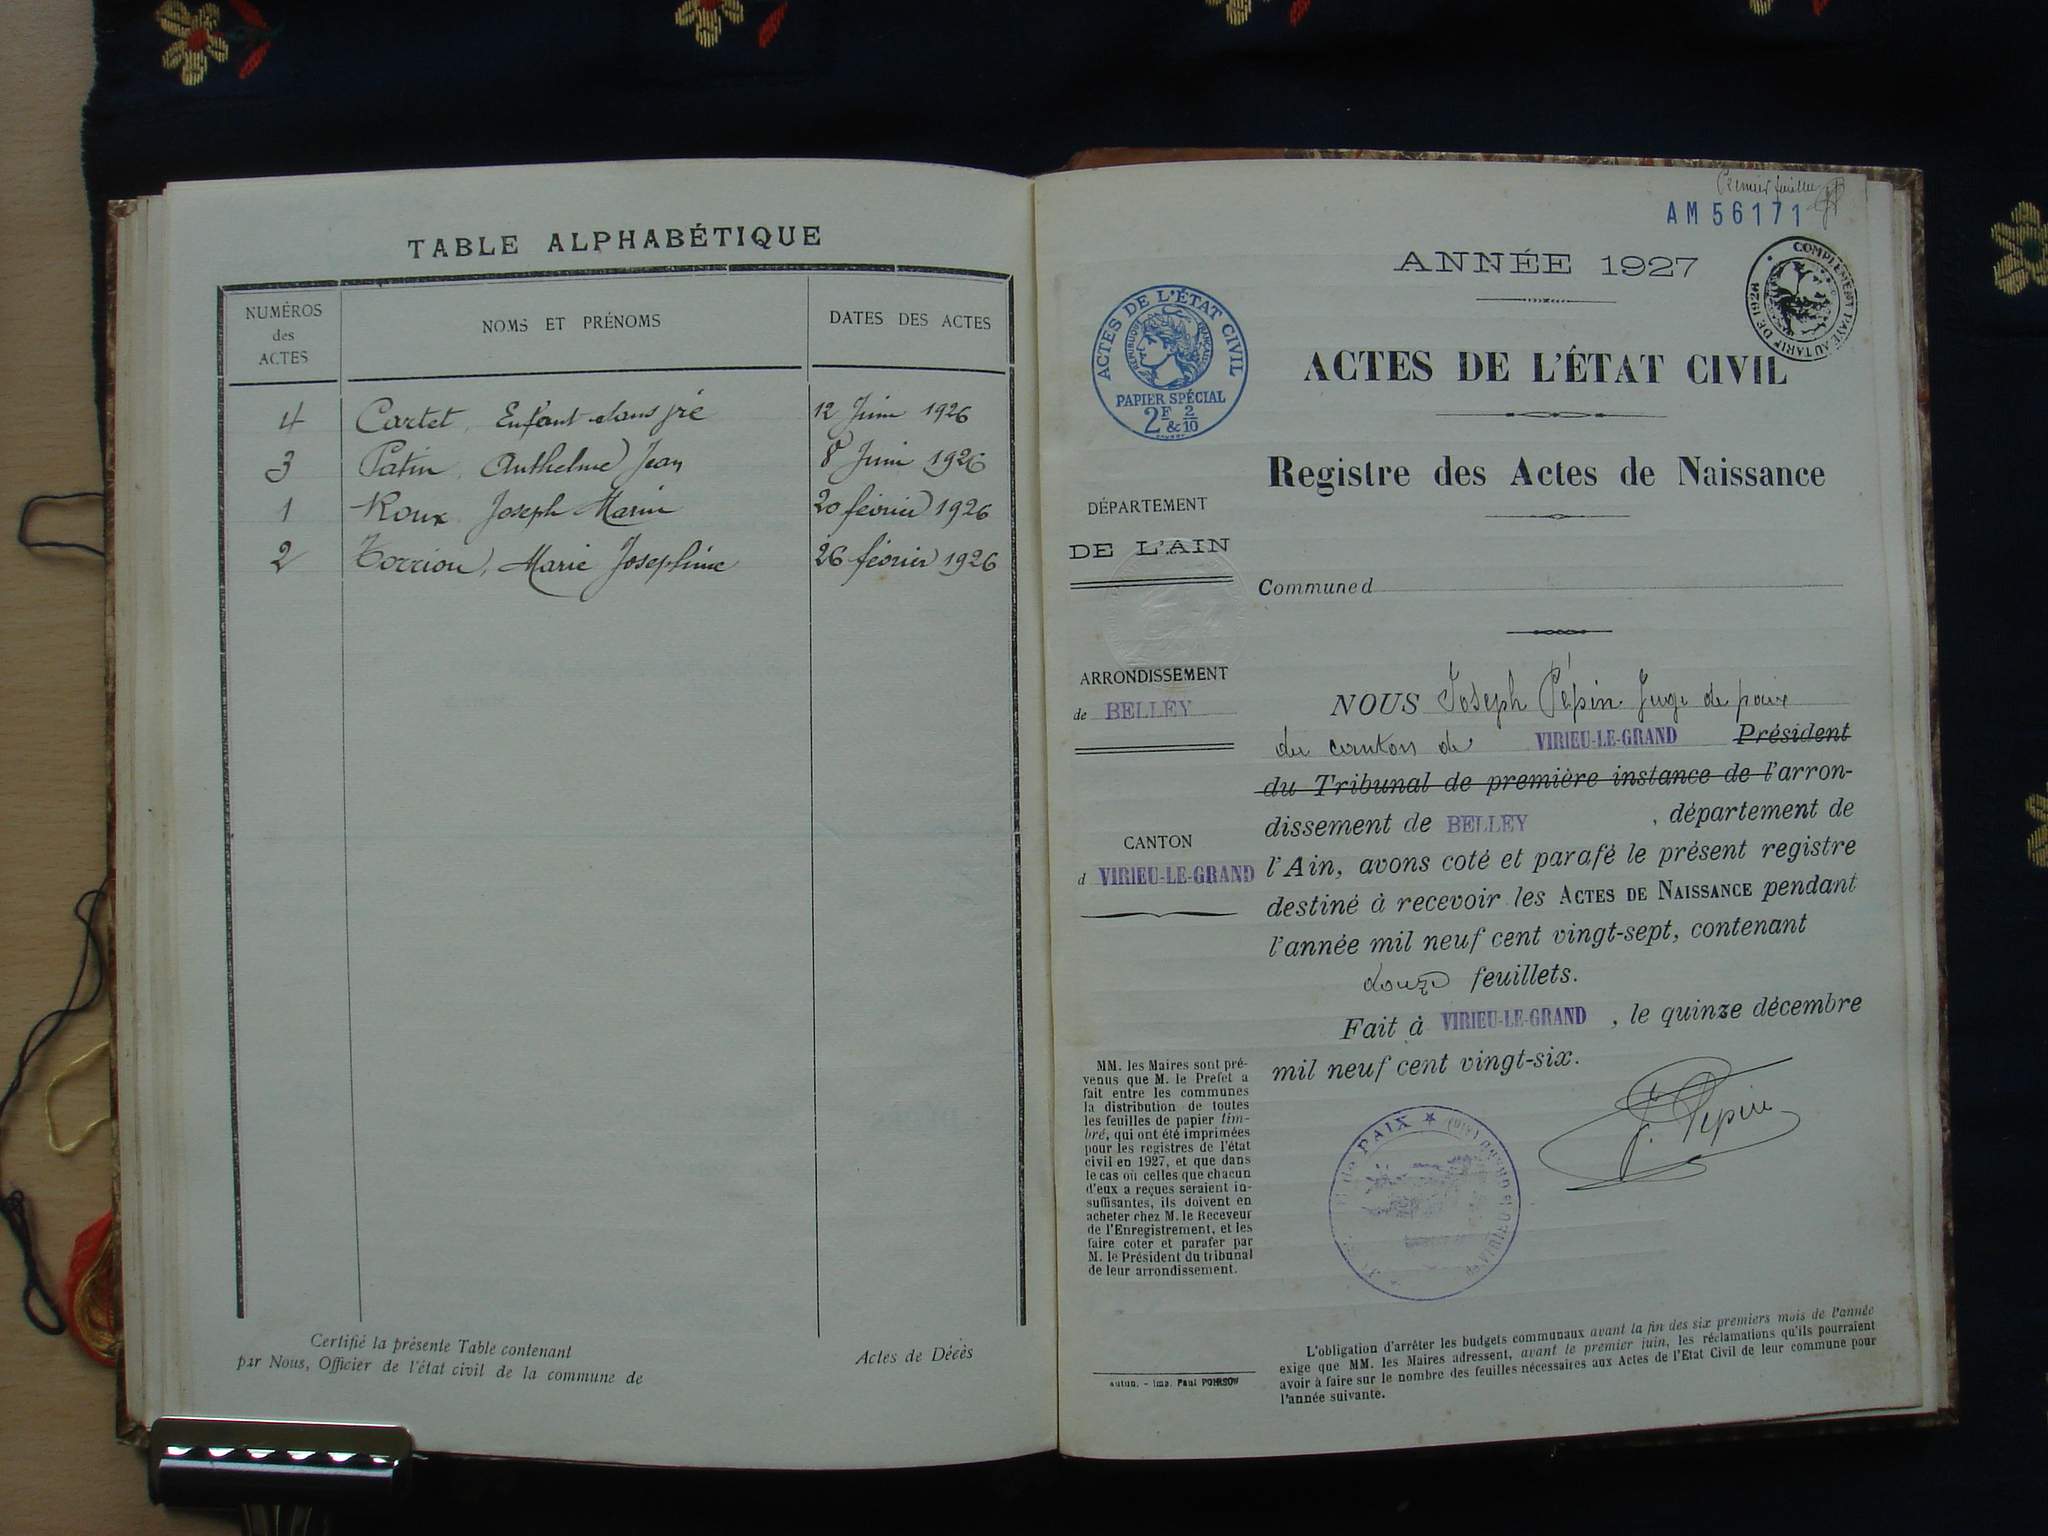 TABLE ALPHABÉTIQUE
NUMÉROS des ACTES
NOMS ET PRÉNOMS
DATES DES ACTES
4 Cartet, Enfant sans 12 Juin 1926
3 Patin, Anthelme Jean 8 Juin 1926
1 Roux Joseph Marin 20 février 1926
2 Marie Josephine 26 février 1926
Certifié la présente Table contenant Actes de Décès
par Nous, Officier de l'état civil de la commune de
Premier feuillet
AM 56171
ANNÉE 1927
COMPLÉMENT PAYÉ AU TARIF DE 1926
ACTES DE L'ÉTAT CIVIL
RÉPUBLIQUE FRANÇAISE
PAPIER SPÉCIAL
2F & 2/10
ACTES DE L'ÉTAT CIVIL
Registre des Actes de Naissance
DÉPARTEMENT
DE L'AIN
Commune d
ARRONDISSEMENT
de BELLEY
CANTON
d VIRIEU-LE-GRAND
NOUS Joseph Pépin Juge de paix
du canton de VIRIEU-LE-GRAND Président
du Tribunal de première instance de l'arron-
dissement de BELLEY , département de
l'Ain, avons coté et parafé le présent registre
destiné à recevoir les ACTES DE NAISSANCE pendant
l'année mil neuf cent vingt-sept, contenant
douze feuillets.
Fait à VIRIEU-LE-GRAND , le quinze décembre
mil neuf cent vingt-six.
J. Pépin
de PAIX
de VIRIEU LE GRAND (Ain)
MM. les Maires sont pré-
venus que M. le Préfet a
fait entre les communes
la distribution de toutes
les feuilles de papier tim-
bré, qui ont été imprimées
pour les registres de l'état
civil en 1927, et que dans
le cas où celles que chacun
d'eux a reçues seraient in-
suffisantes, ils doivent en
acheter chez M. le Receveur
de l'Enregistrement, et les
faire coter et parafer par
M. le Président du tribunal
de leur arrondissement.
Autun. - Imp. Paul
L'obligation d'arrêter les budgets communaux avant la fin des six premiers mois de l'année
exige que MM. les Maires adressent, avant le premier juin, les réclamations qu'ils pourraient
avoir à faire sur le nombre des feuilles nécessaires aux Actes de l'Etat Civil de leur commune pour
l'année suivante.